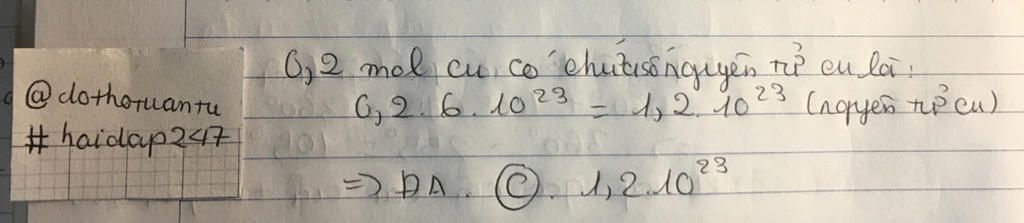 @dothotuantu
# hoidap247
0,2 mol cu có chứa số nguyên tử cu là:
0,2.6.10²³ = 1,2.10²³ (nguyên tử cu)
=> ĐA. Ⓒ. 1,2.10²³